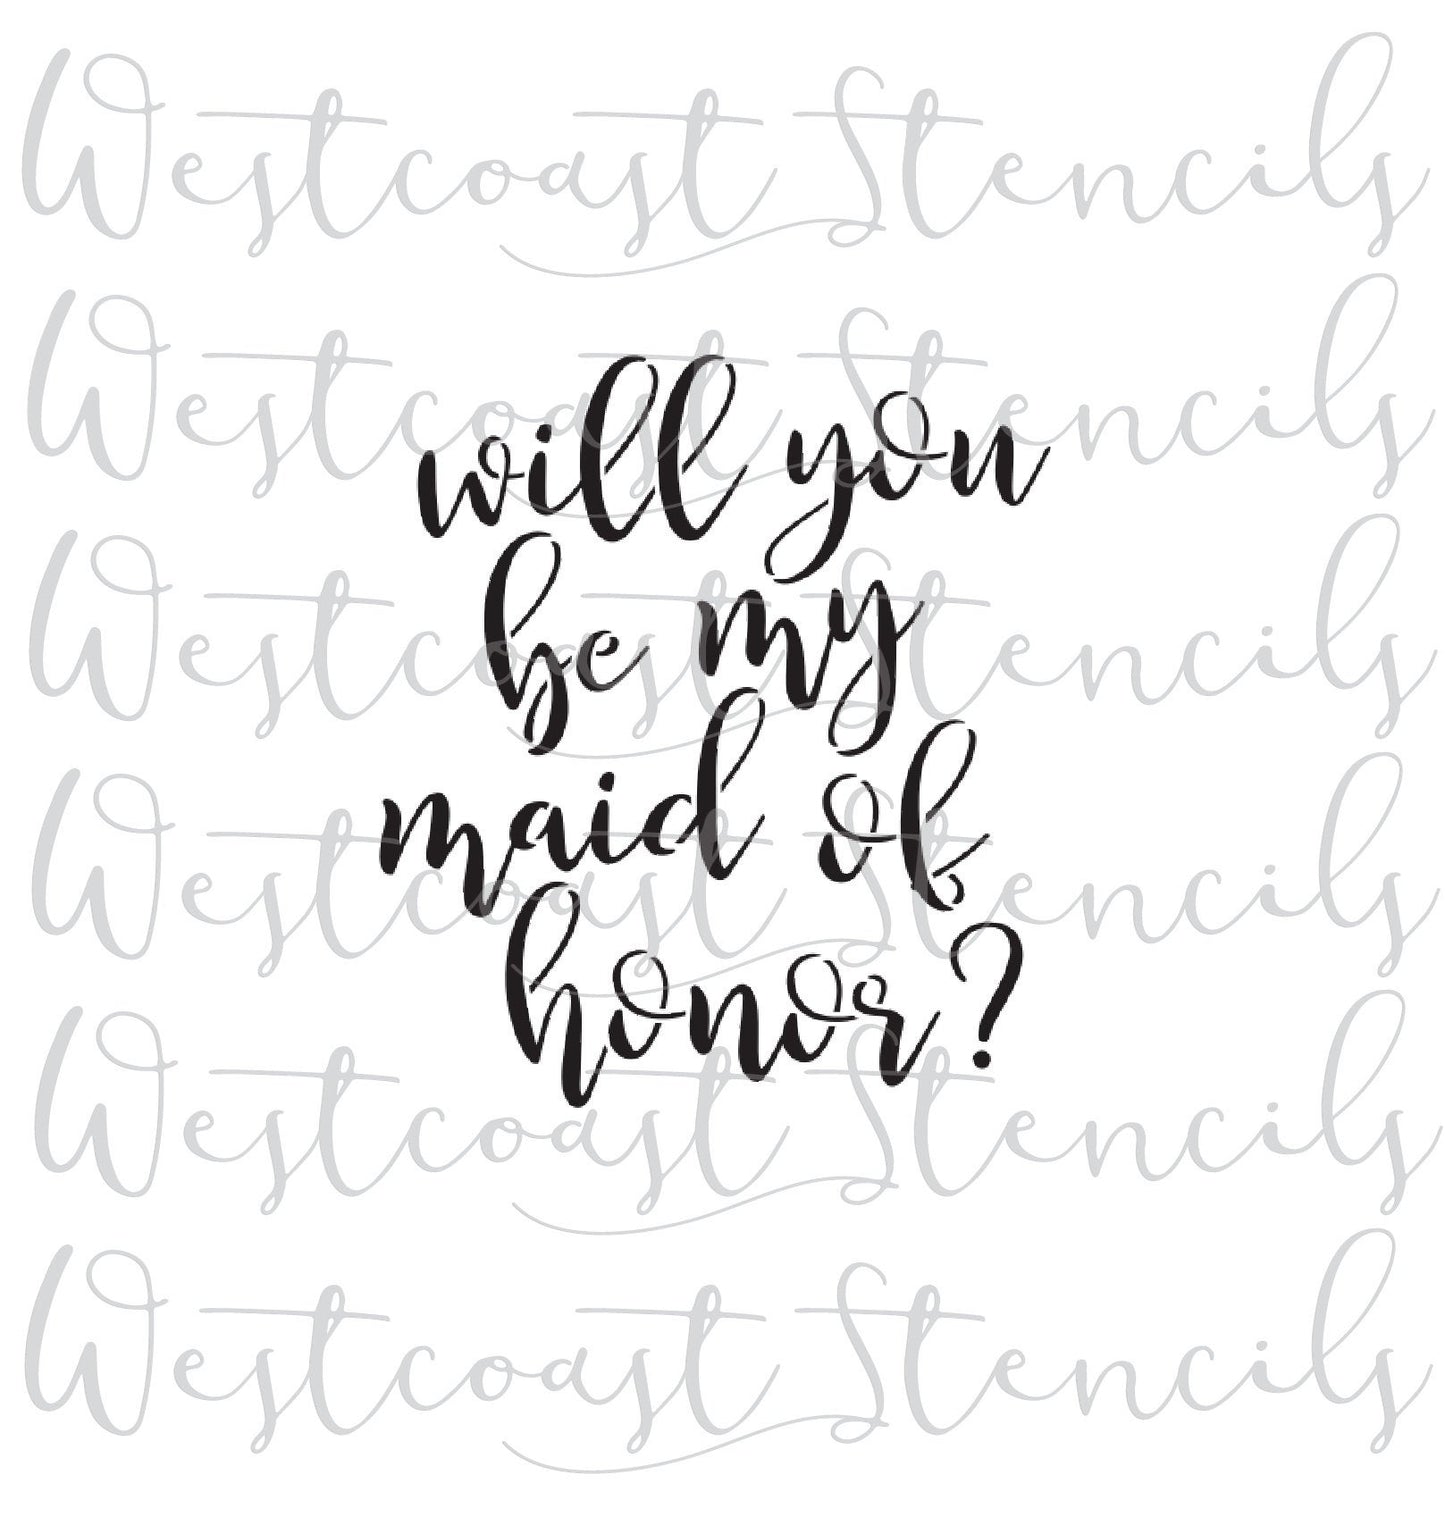 Westcoast Stencils
Westcoast Stencils
will you
Westcoast Stencils
be my
maid of
Westcoast Stencils
honor?
Westcoast Stencils
Westcoast Stencils